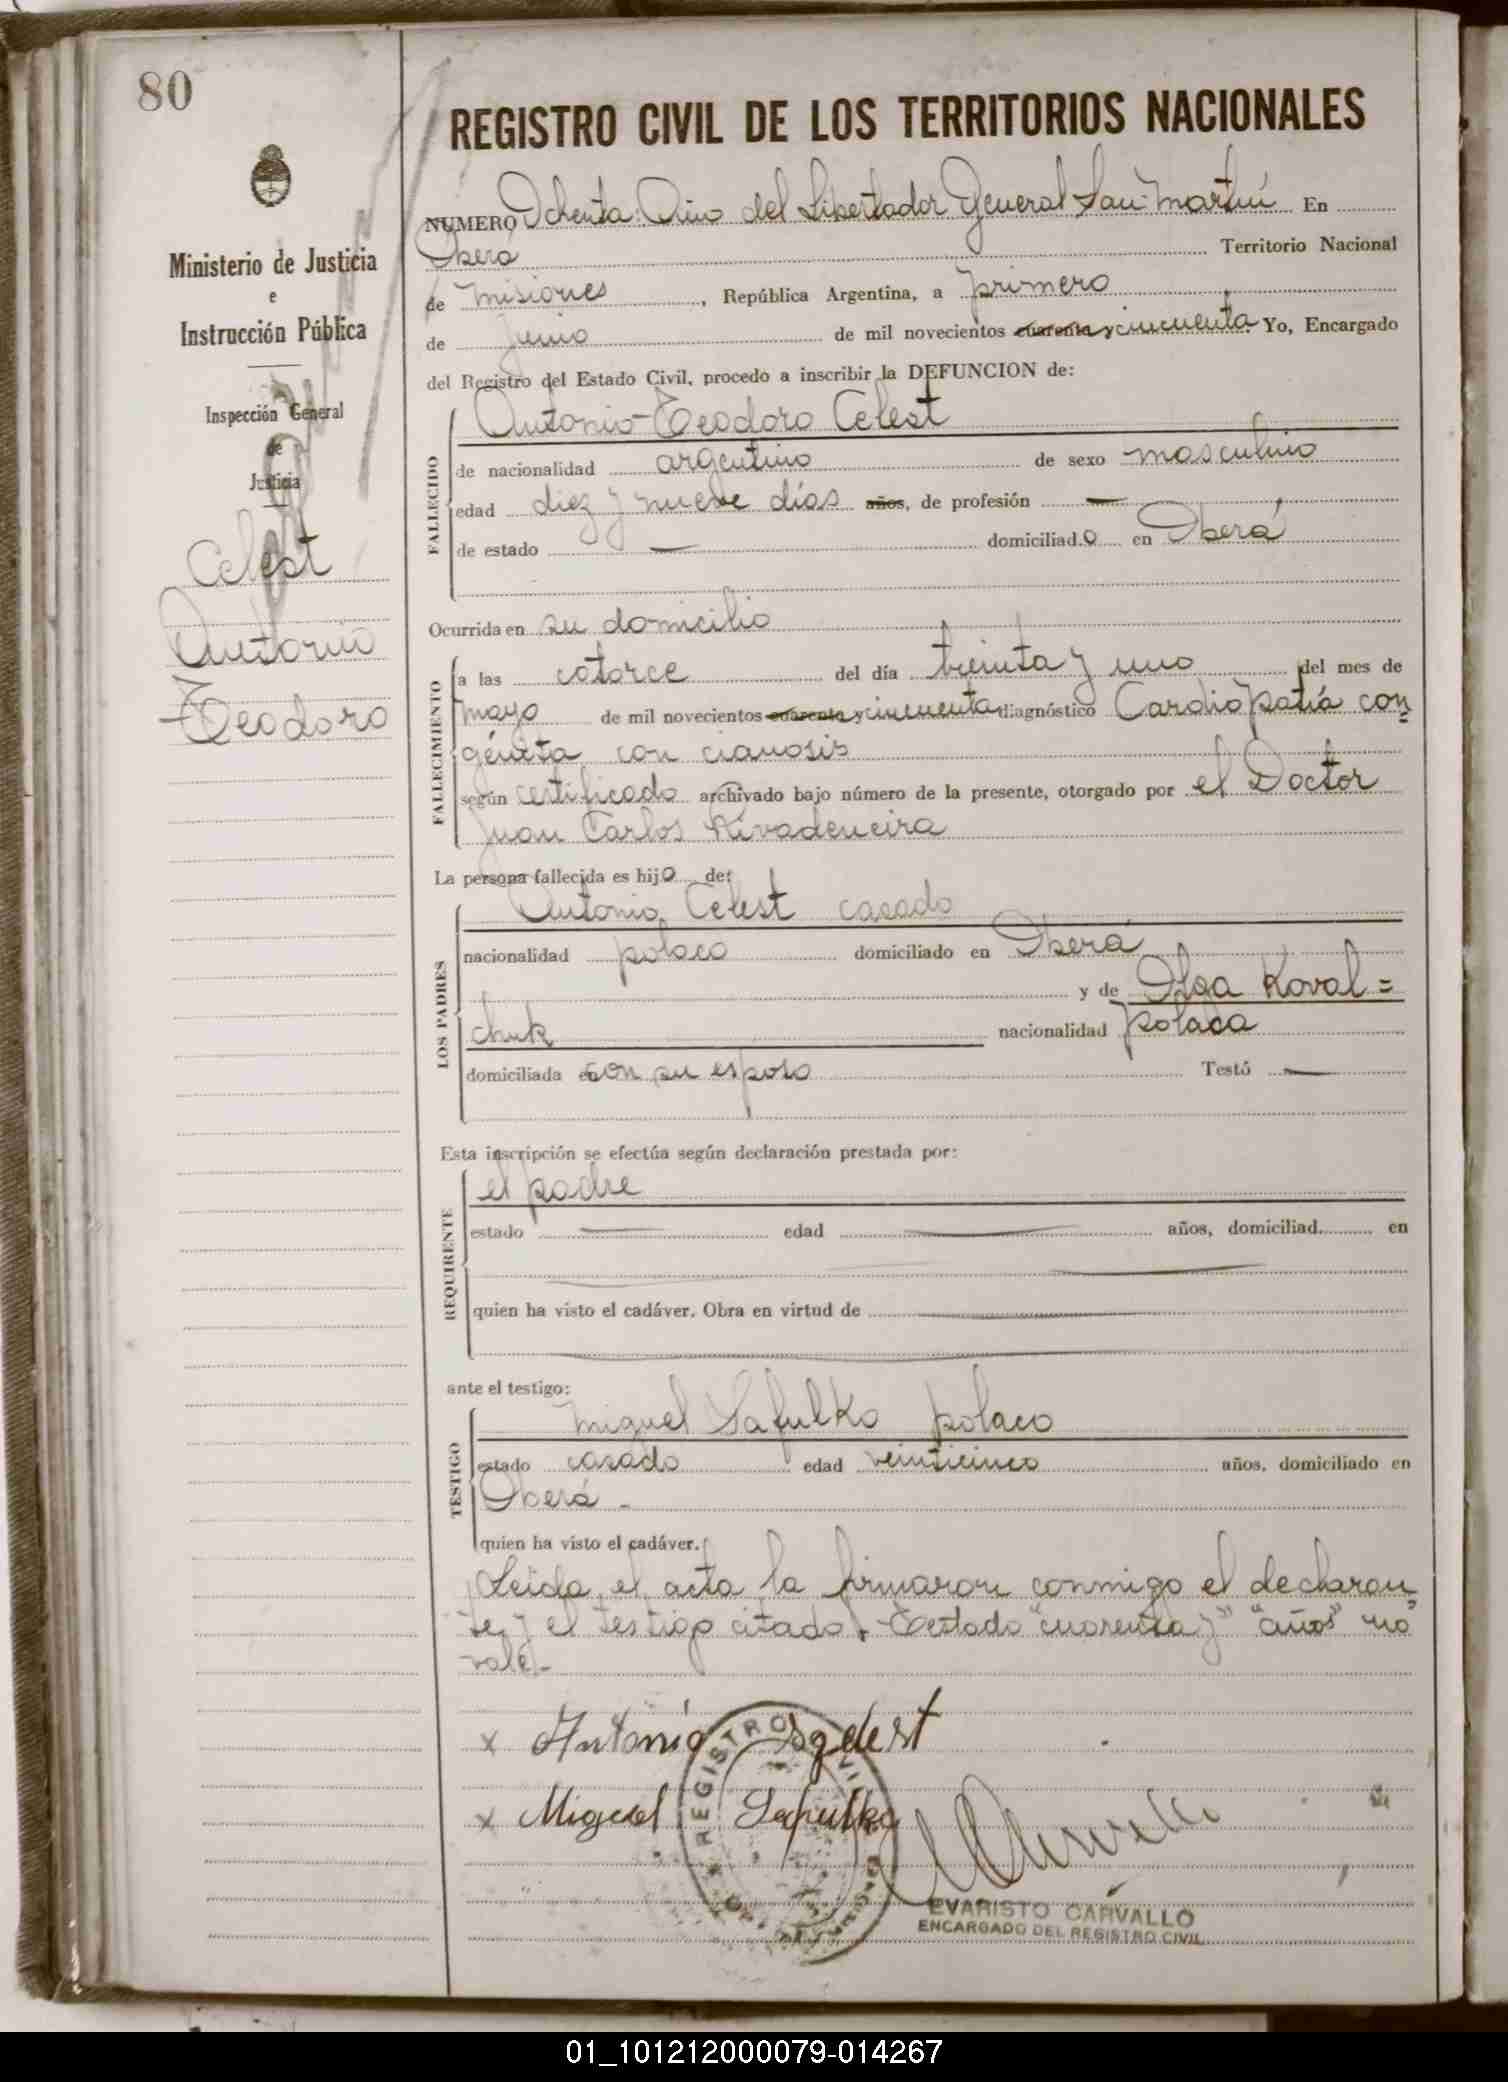 80
Ministerio de Justicia
e
Instrucción Pública
Inspección General
de
Justicia
Celest
Antonio
Teodoro
REGISTRO CIVIL DE LOS TERRITORIOS NACIONALES
NUMERO Ochenta. Año del Libertador General San Martín En
Oberá Territorio Nacional
de misiones, República Argentina, a primero
de junio de mil novecientos cuarenta y cincuenta. Yo, Encargado
del Registro del Estado Civil, procedo a inscribir la DEFUNCION de:
FALLECIDO
Antonio Teodoro Celest
de nacionalidad argentino de sexo masculino
edad diez y nueve días años, de profesión —
de estado — domiciliado en Oberá
Ocurrida en su domicilio
FALLECIMIENTO
a las catorce del día treinta y uno del mes de
mayo de mil novecientos cuarenta y cincuenta diagnóstico Cardiopatía con=
génita con cianosis
según certificado archivado bajo número de la presente, otorgado por el Doctor
Juan Carlos Rivadeneira
La persona fallecida es hijo de:
LOS PADRES
Antonio Celest casado
nacionalidad polaco domiciliado en Oberá
y de Olga Koval=
chuk nacionalidad polaca
domiciliada en con su esposo Testó —
Esta inscripción se efectúa según declaración prestada por:
REQUIRENTE
el padre
estado — edad — años, domiciliad en
quien ha visto el cadáver. Obra en virtud de —
ante el testigo:
TESTIGO
Miguel Safulko polaco
estado casado edad veinticinco años, domiciliado en
Oberá -
quien ha visto el cadáver.
Leída el acta la firmaron conmigo el declaran
te y el testigo citado. Testado "cuarenta y" "años" no
vale.-
x Antonio
x Miguel Sapulko
REGISTRO CIVIL
EVARISTO CARVALLO
ENCARGADO DEL REGISTRO CIVIL
01_101212000079-014267